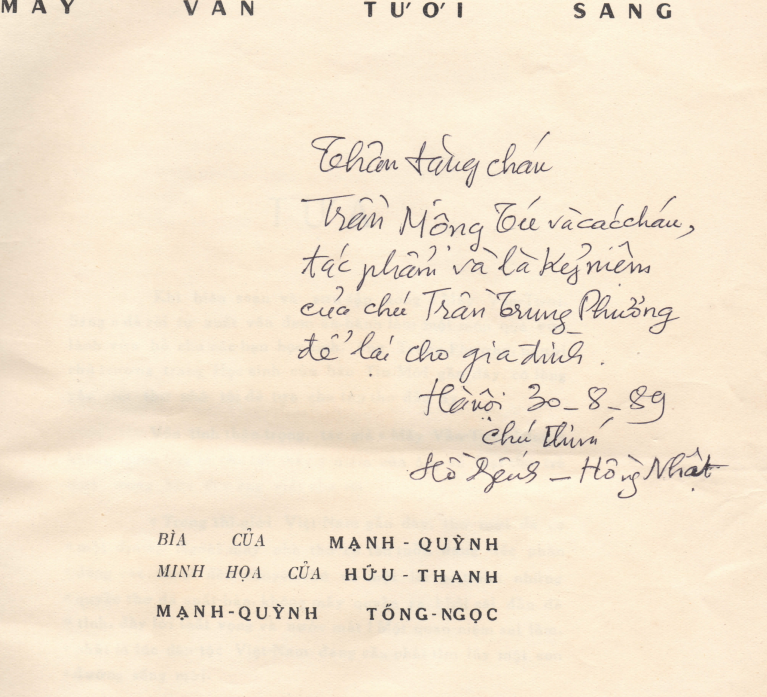 MÂY VẪN TƯƠI SANG
Thân tặng cháu
Trần Mộng Tú và các cháu,
tác phẩm và là kỷ niệm
của chú Trần Trung Phưởng
để lại cho gia đình.
Hà nội 30-8-89
chú thím
Hồ Dzếnh - Hồng Nhật
BÌA CỦA MẠNH-QUỲNH
MINH HỌA CỦA HỮU-THANH
MẠNH-QUỲNH TỐNG-NGỌC